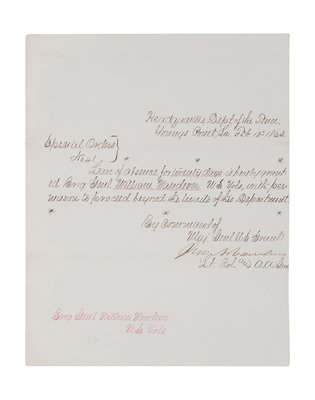 Headquarters Dept of the Tenn.
Youngs Point, La, Feb. 10th 1863
Special Orders }
No 41
Leave of absence for twenty days is hereby grant
ed Brig Genl William U.S. Vols, with per
mission to proceed beyond the limits of this Department
By Command of
Maj. Genl U.S. Grant
Lt. Col. A.A. Gen
Brig Genl William
U.S. Vols